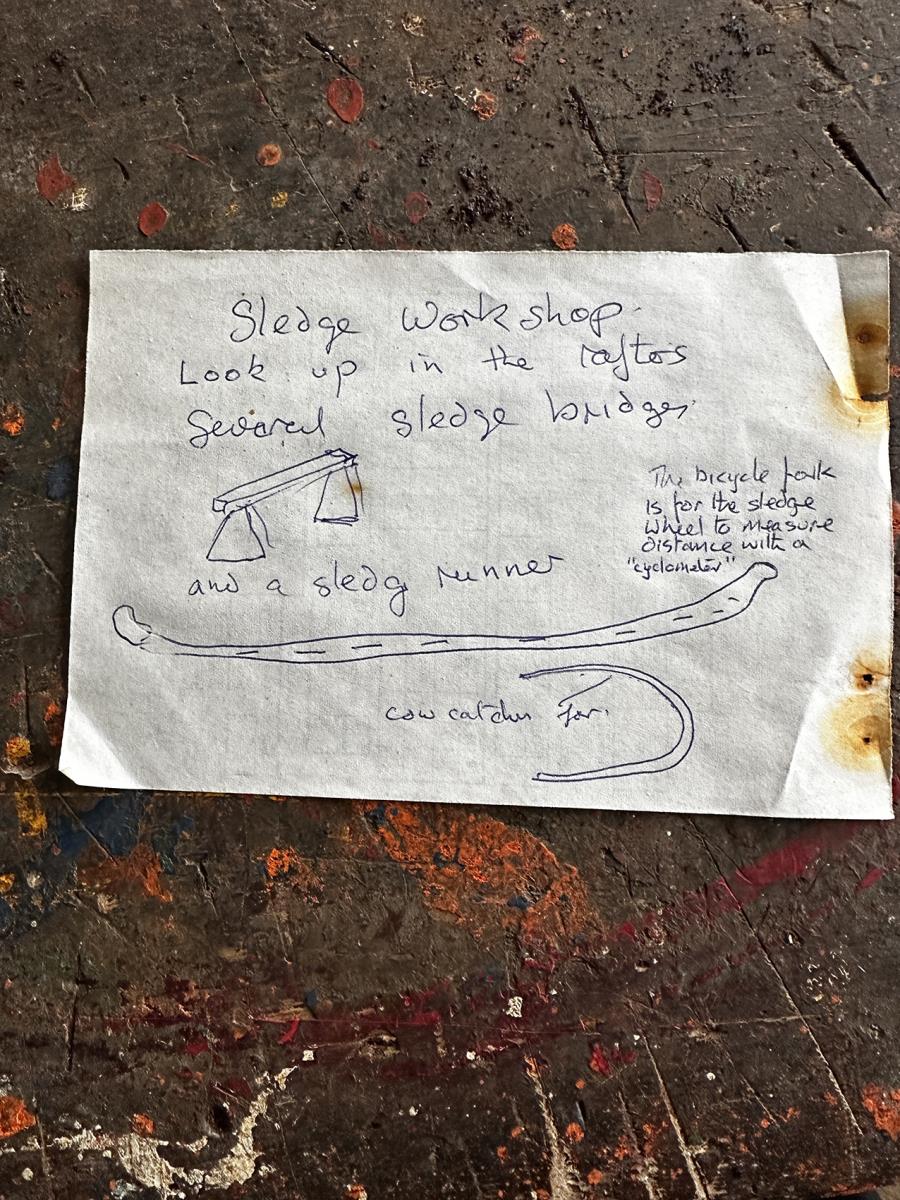 Sledge Workshop.
Look up in the rafters
Several sledge bridges
The bicycle fork
is for the sledge
wheel to measure
distance with a
"cyclometer"
and a sledg runner
cow catcher for.